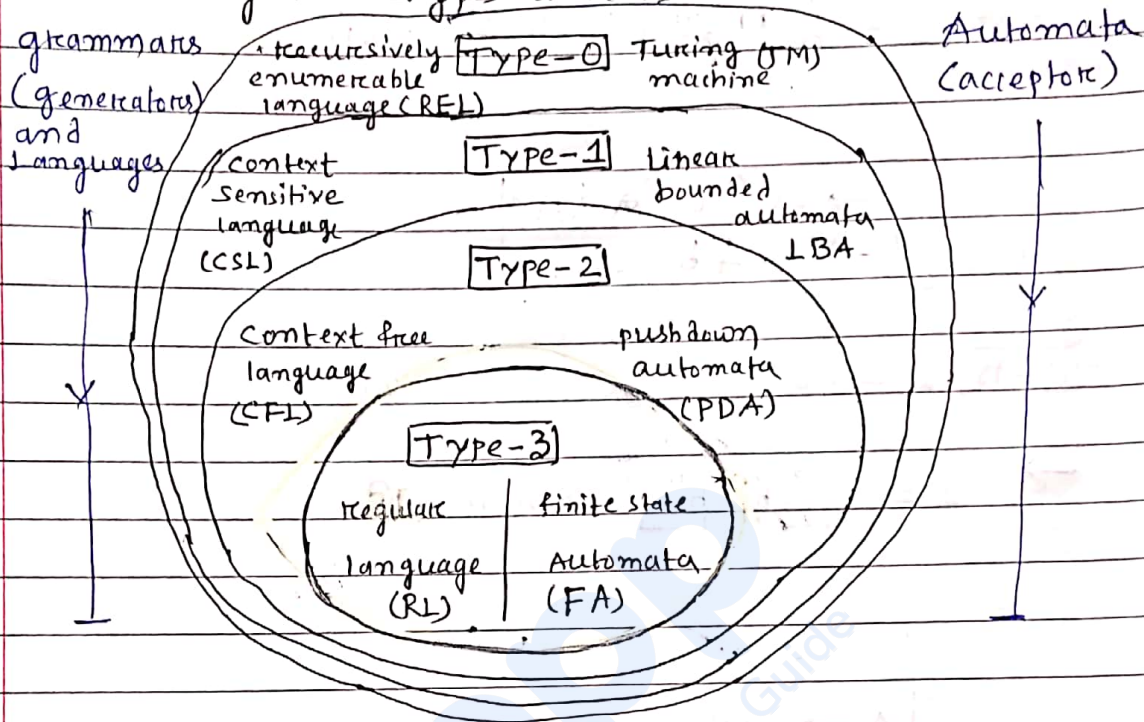 grammars
(generators)
and
Languages
Recursively
enumerable
language (REL)
Type-0
Turing (TM)
machine
Automata
(acceptor)
Context
sensitive
language
(CSL)
Type-1
Linear
bounded
automata
LBA
Type-2
Context free
language
(CFL)
pushdown
automata
(PDA)
Type-3
regular
language
(RL)
finite state
Automata
(FA)
Guide